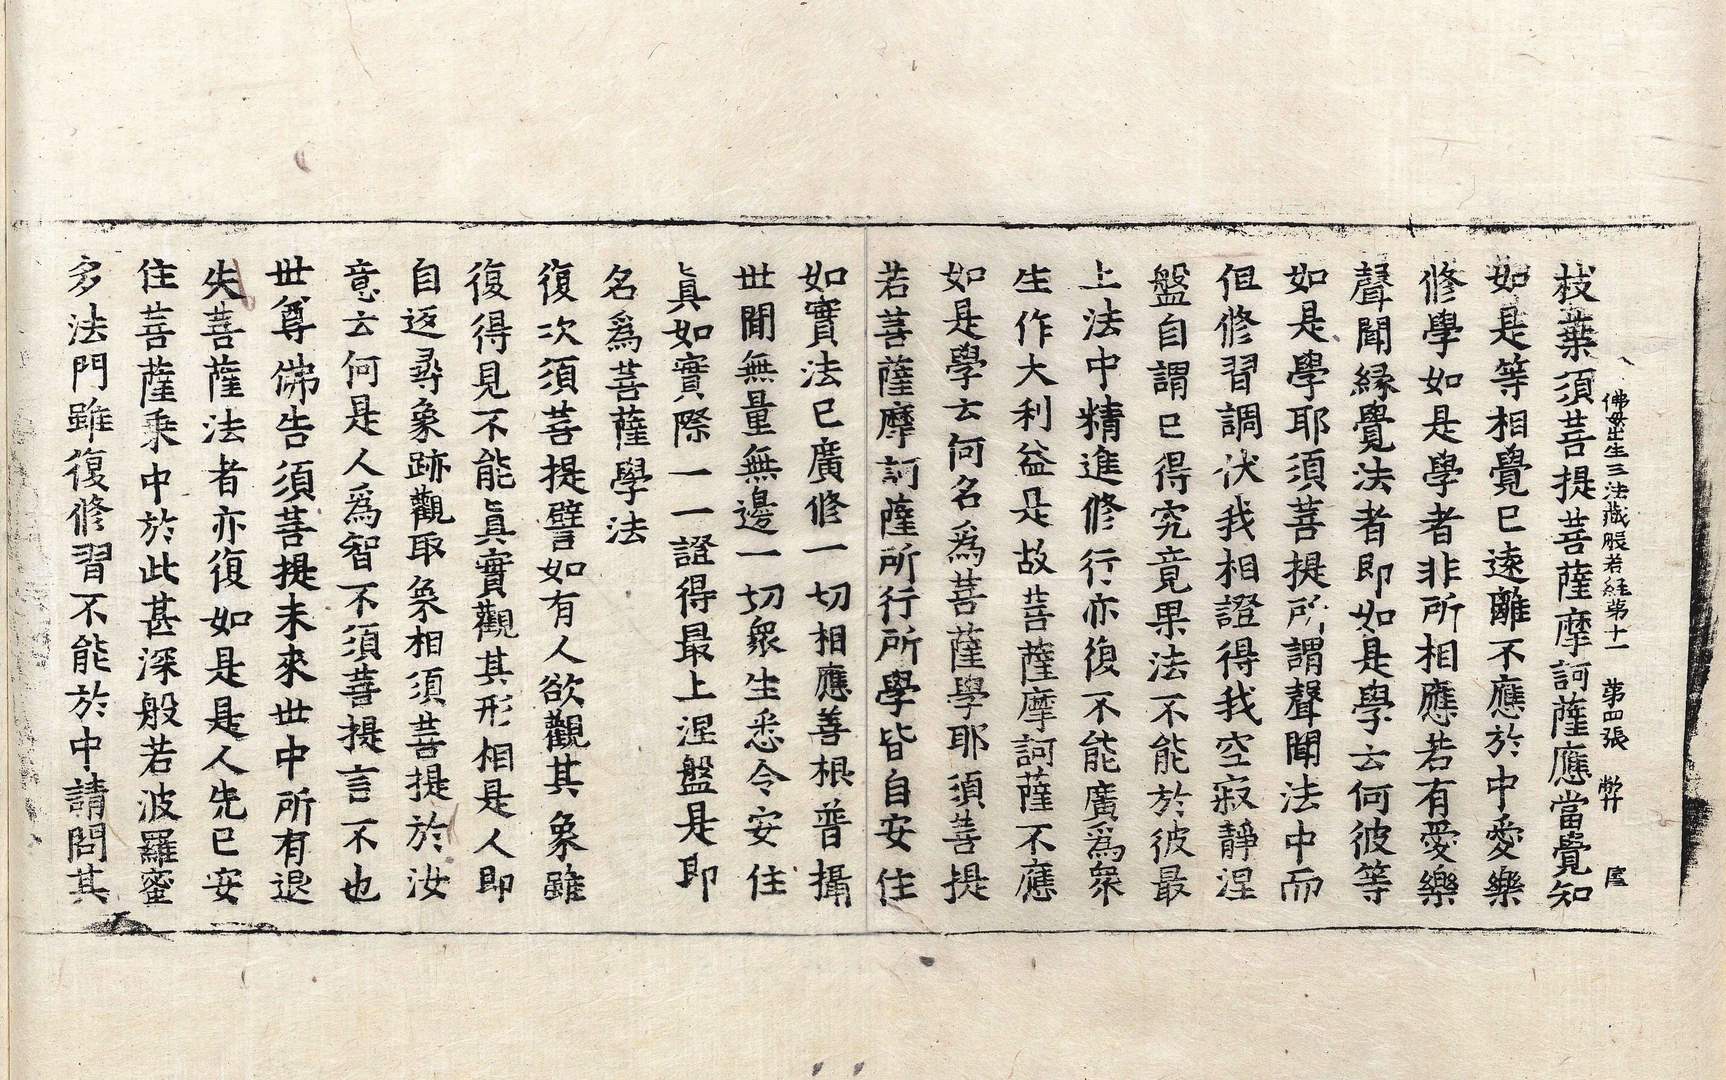 佛母出生三法藏般若經第十一　第四張　弊
枝葉須菩提菩薩摩訶薩應當覺知
如是等相覺已遠離不應於中愛樂
修學如是學者非所相應若有愛樂
聲聞緣覺法者即如是學云何彼等
如是學耶須菩提所謂聲聞法中而
但修習調伏我相證得我空寂靜涅
盤自謂已得究竟果法不能於彼最
上法中精進修行亦復不能廣爲衆
生作大利益是故菩薩摩訶薩不應
如是學云何名爲菩薩學耶須菩提
若菩薩摩訶薩所行所學皆自安住
如實法已廣修一切相應善根普攝
世間無量無邊一切衆生悉令安住
眞如實際一一證得最上涅盤是即
名爲菩薩學法
復次須菩提譬如有人欲觀其象雖
復得見不能眞實觀其形相是人即
自返尋象跡觀取象相須菩提於汝
意云何是人爲智不須菩提言不也
世尊佛告須菩提未來世中所有退
失菩薩法者亦復如是是人先已安
住菩薩乘中於此甚深般若波羅蜜
多法門雖復修習不能於中請問其